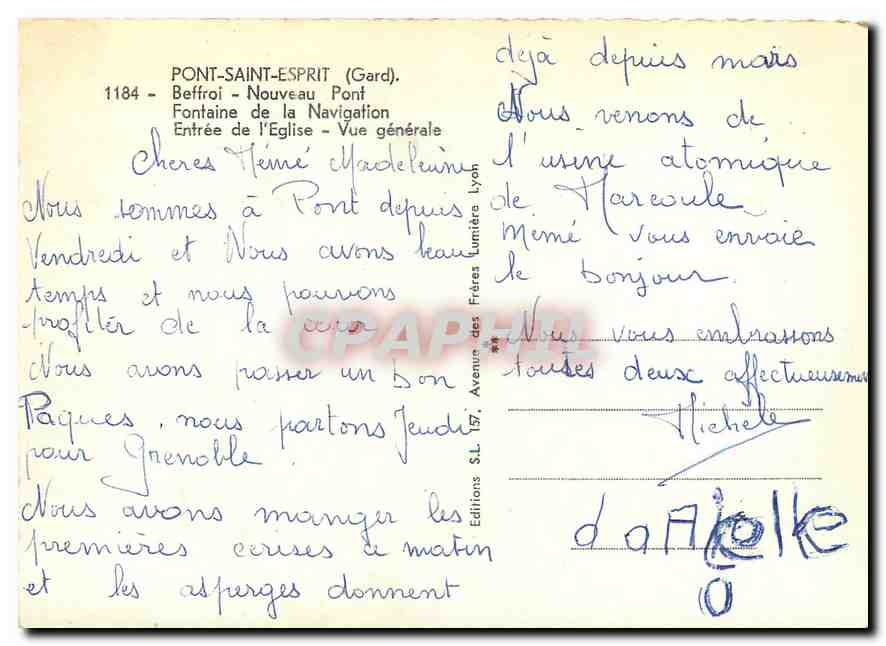 PONT-SAINT-ESPRIT (Gard).
1184 - Beffroi - Nouveau Pont
Fontaine de la Navigation
Entrée de l'Eglise - Vue générale
Cheres Mémé Madeleine
Nous sommes à Pont depuis
Vendredi et Nous avons beau
temps et nous pouvons
profiter de la cour
Nous avons passer un bon
Paques, nous partons Jeudi
pour Grenoble.
Nous avons manger les
premières cerises ce matin
et les asperges donnent
Editions S.L. 157, Avenue des Frères Lumière Lyon
**
déjà depuis mars
Nous venons de
l'usine atomique
de Marcoule
Mémé vous envoie
le bonjour.
Nous vous embrassons
toutes deux affectueusement
Michèle
CPAPHIL